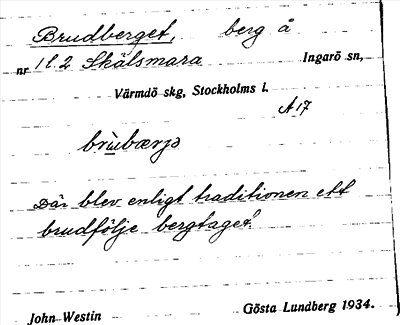 Brudberget, berg å
nr 1 l. 2 Skälsmara Ingarö sn,
Värmdö skg, Stockholms l.
A 17
brùbærjə
Där blev enligt traditionen ett
brudfölje bergtaget.
John Westin Gösta Lundberg 1934.